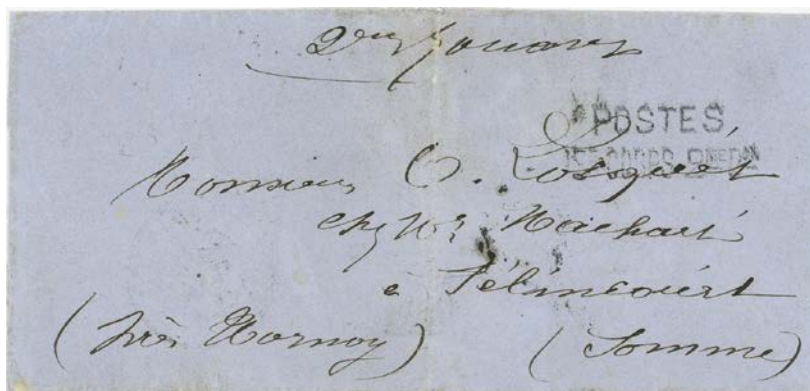 2me Zouaves
POSTES
1ER CORPS
Monsieur O. Losquet
chez Mr Machart
à Sélincourt
(près Hornoy) (Somme)